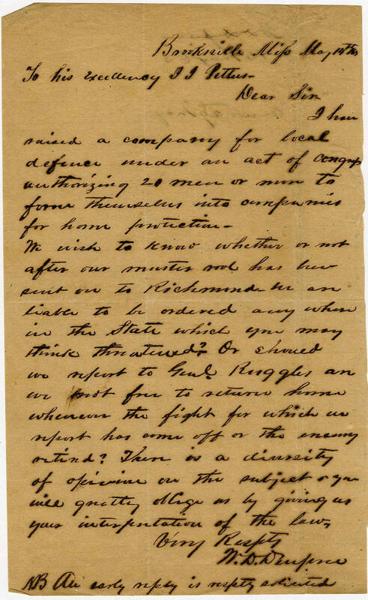 Brooksville Miss May 18th
To his excellency J J Pettus
Dear Sir
I have
raised a company for local
defence under an act of Congress
authorizing 20 men or more to
form themselves into companies
for home protection —
We wish to know whether or not
after our muster roll has been
sent on to Richmond we are
liable to be ordered any where
in the State which you may
think threatened? Or should
we report to Genl Ruggles are
we not free to return home
whenever the fight for which we
report has come off or the enemy
retired? There is a diversity
of opinion on the subject & you
will greatly oblige us by giving us
your interpretation of the law,
Very Respty
W. D.
NB An early reply is resptly solicited